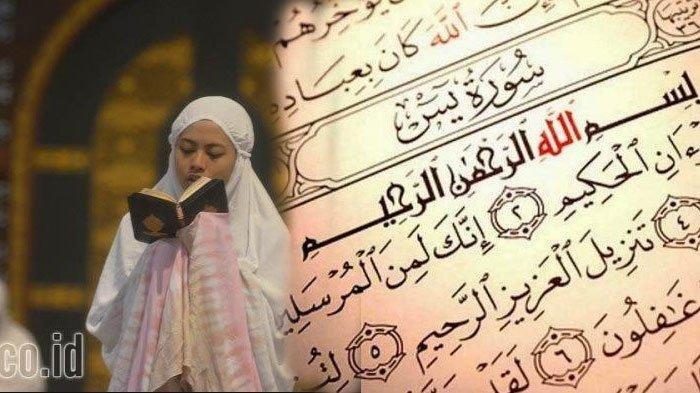 يُؤَخِّرُهُمْ
إِنَّ اللَّهَ كَانَ بِعِبَادِهِ
سُورَةُ يسٓ
بِسْمِ اللَّهِ الرَّحْمَٰنِ الرَّحِيمِ
ءَانِ الْحَكِيمِ ٢ إِنَّكَ لَمِنَ الْمُرْسَلِي
٤ تَنزِيلَ الْعَزِيزِ الرَّحِيمِ ٥
غَٰفِلُونَ ٦ لَقَدْ
co.id